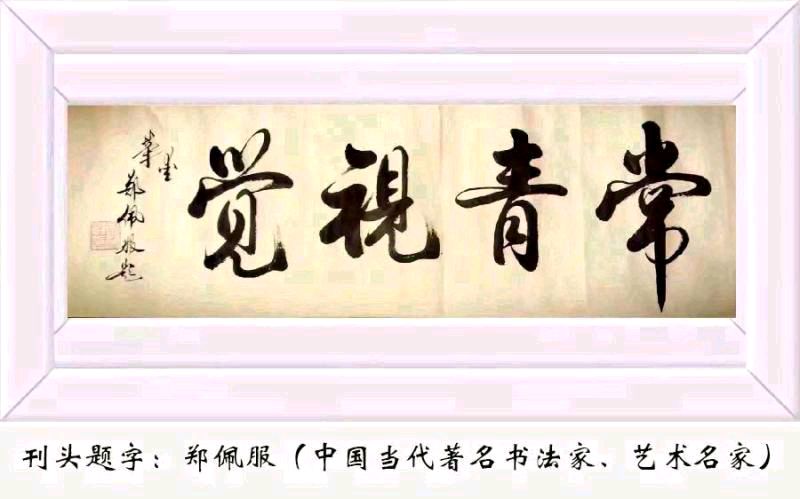 常青視覚
郑佩服题
刊头题字：郑佩服（中国当代著名书法家、艺术名家）